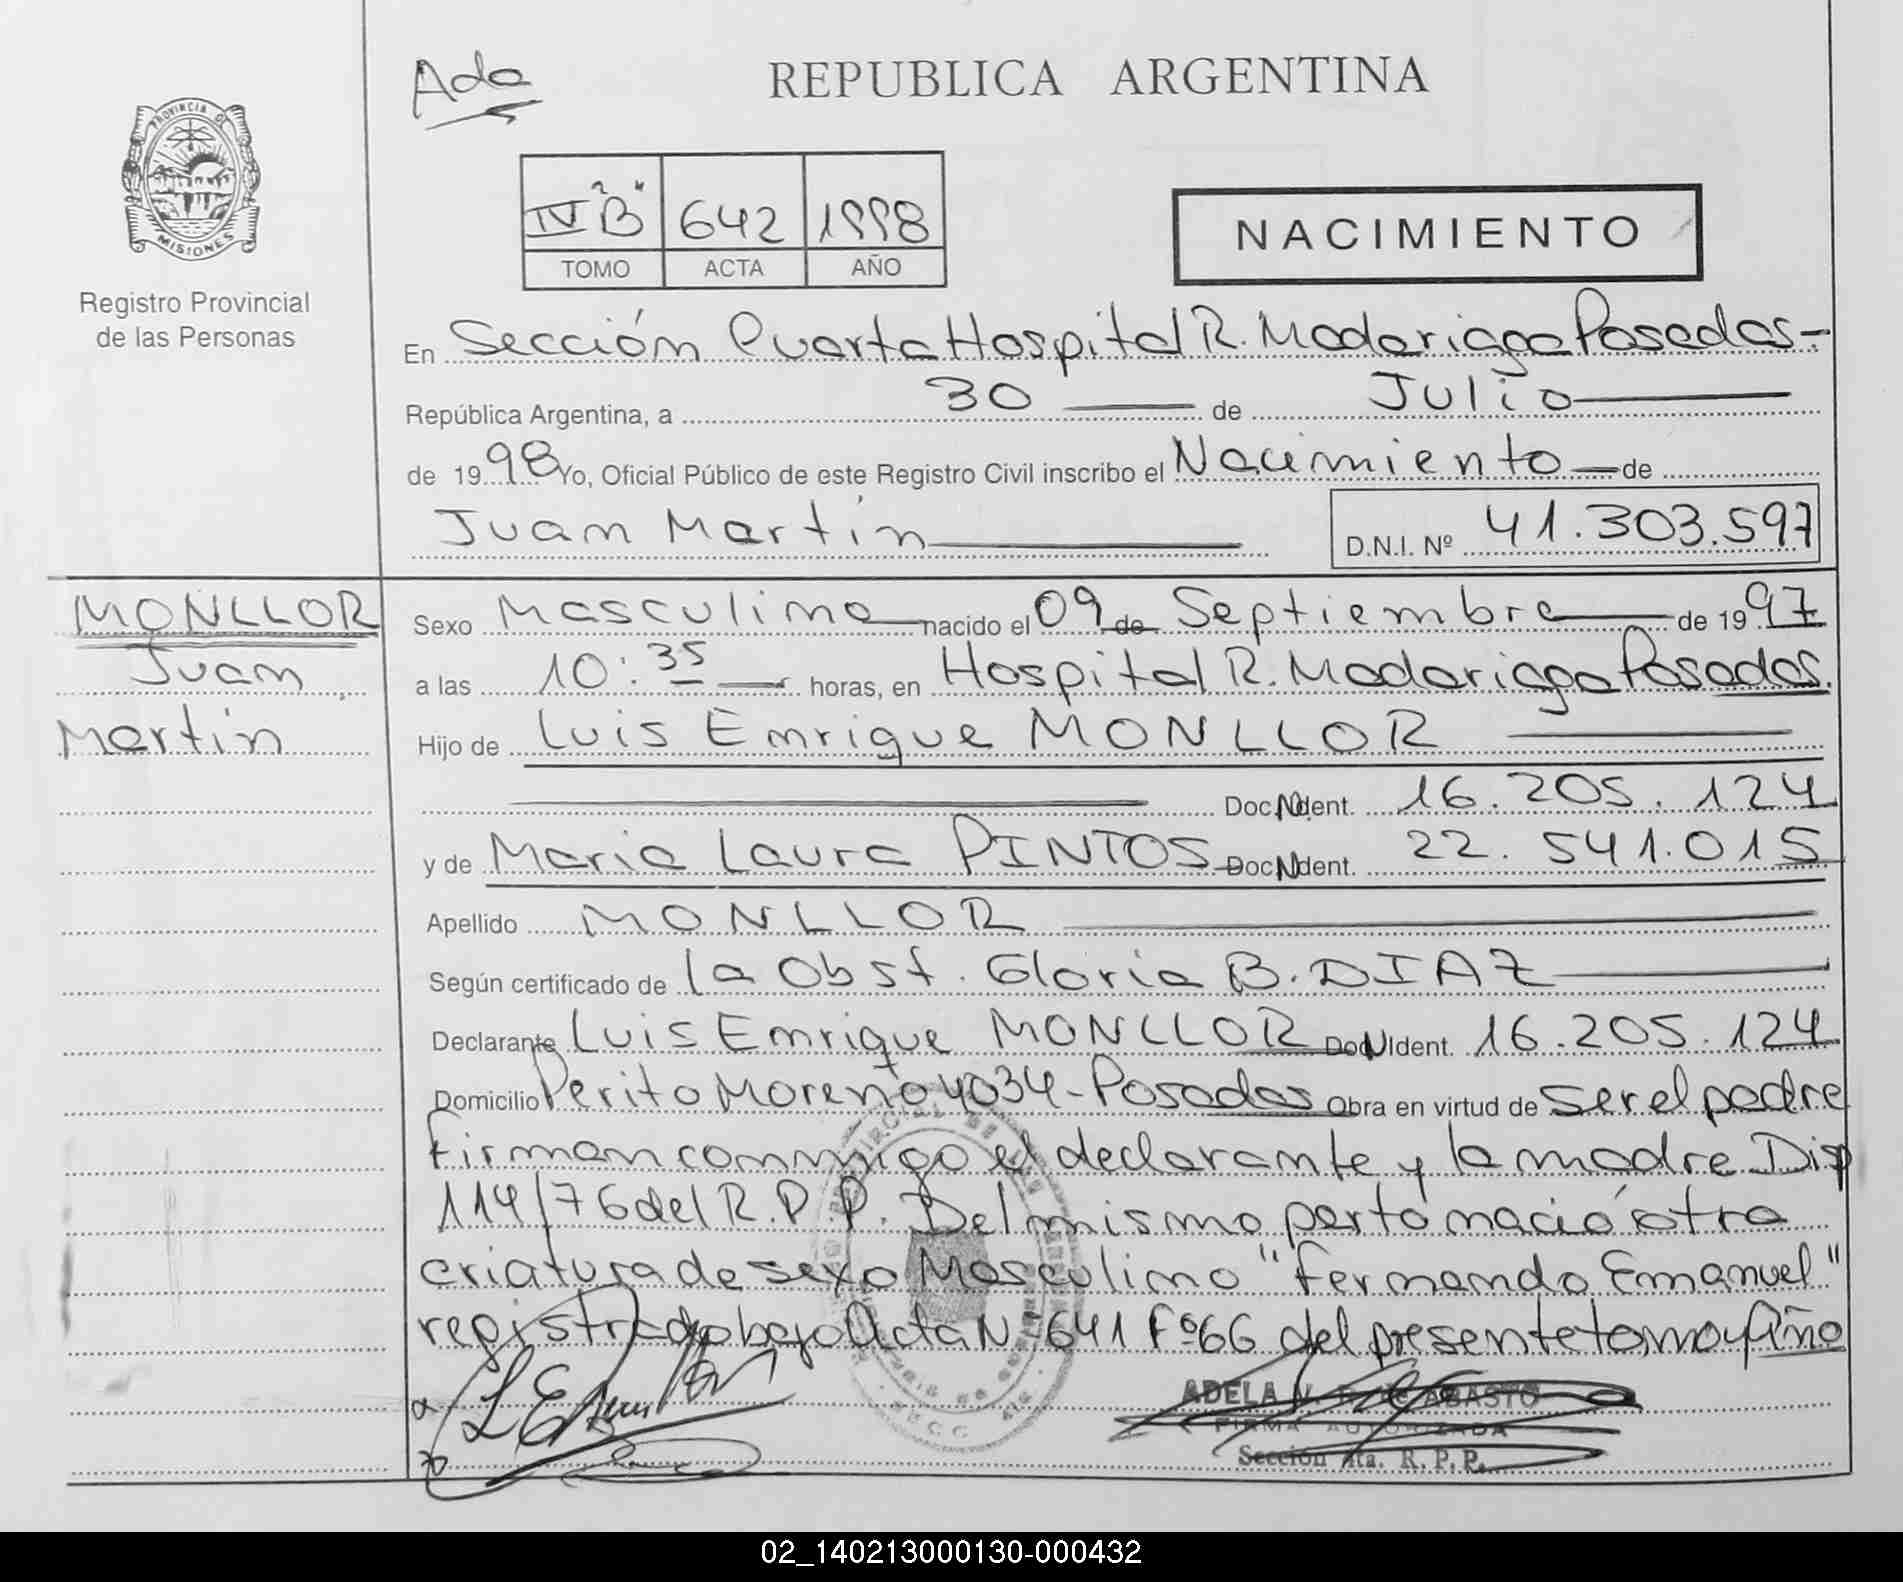 Ada
REPUBLICA ARGENTINA
PROVINCIA DE
MISIONES
Registro Provincial
de las Personas
IV "B" 642 1998
TOMO ACTA AÑO
NACIMIENTO
En Sección Cuarta Hospital R. Madariaga Posadas-
República Argentina, a 30 de Julio
de 1998 Yo, Oficial Público de este Registro Civil inscribo el Nacimiento de
Juan Martín D.N.I. Nº 41.303.597
MONLLOR
Juan
Martín
Sexo Masculino nacido el 09 de Septiembre de 1997
a las 10:35 horas, en Hospital R. Madariaga Posadas.
Hijo de Luis Enrique MONLLOR
Doc. Ident. 16.205.124
y de Maria Laura PINTOS Doc. Ident. 22.541.015
Apellido MONLLOR
Según certificado de la Obst. Gloria B. DIAZ
Declarante Luis Enrique MONLLOR Doc. Ident. 16.205.124
Domicilio Perito Moreno 4034-Posadas Obra en virtud de ser el padre
firman conmigo el declarante y la madre Disp
114/76 del R.P.P. Del mismo parto nació otra
criatura de sexo Masculino "Fernando Emanuel"
registrado bajo Acta Nº 641 Fº66 del presente tomo y Año
ADELA ABASTO
FIRMA AUTORIZADA
Sección 4ta. R.P.P.
02_140213000130-000432